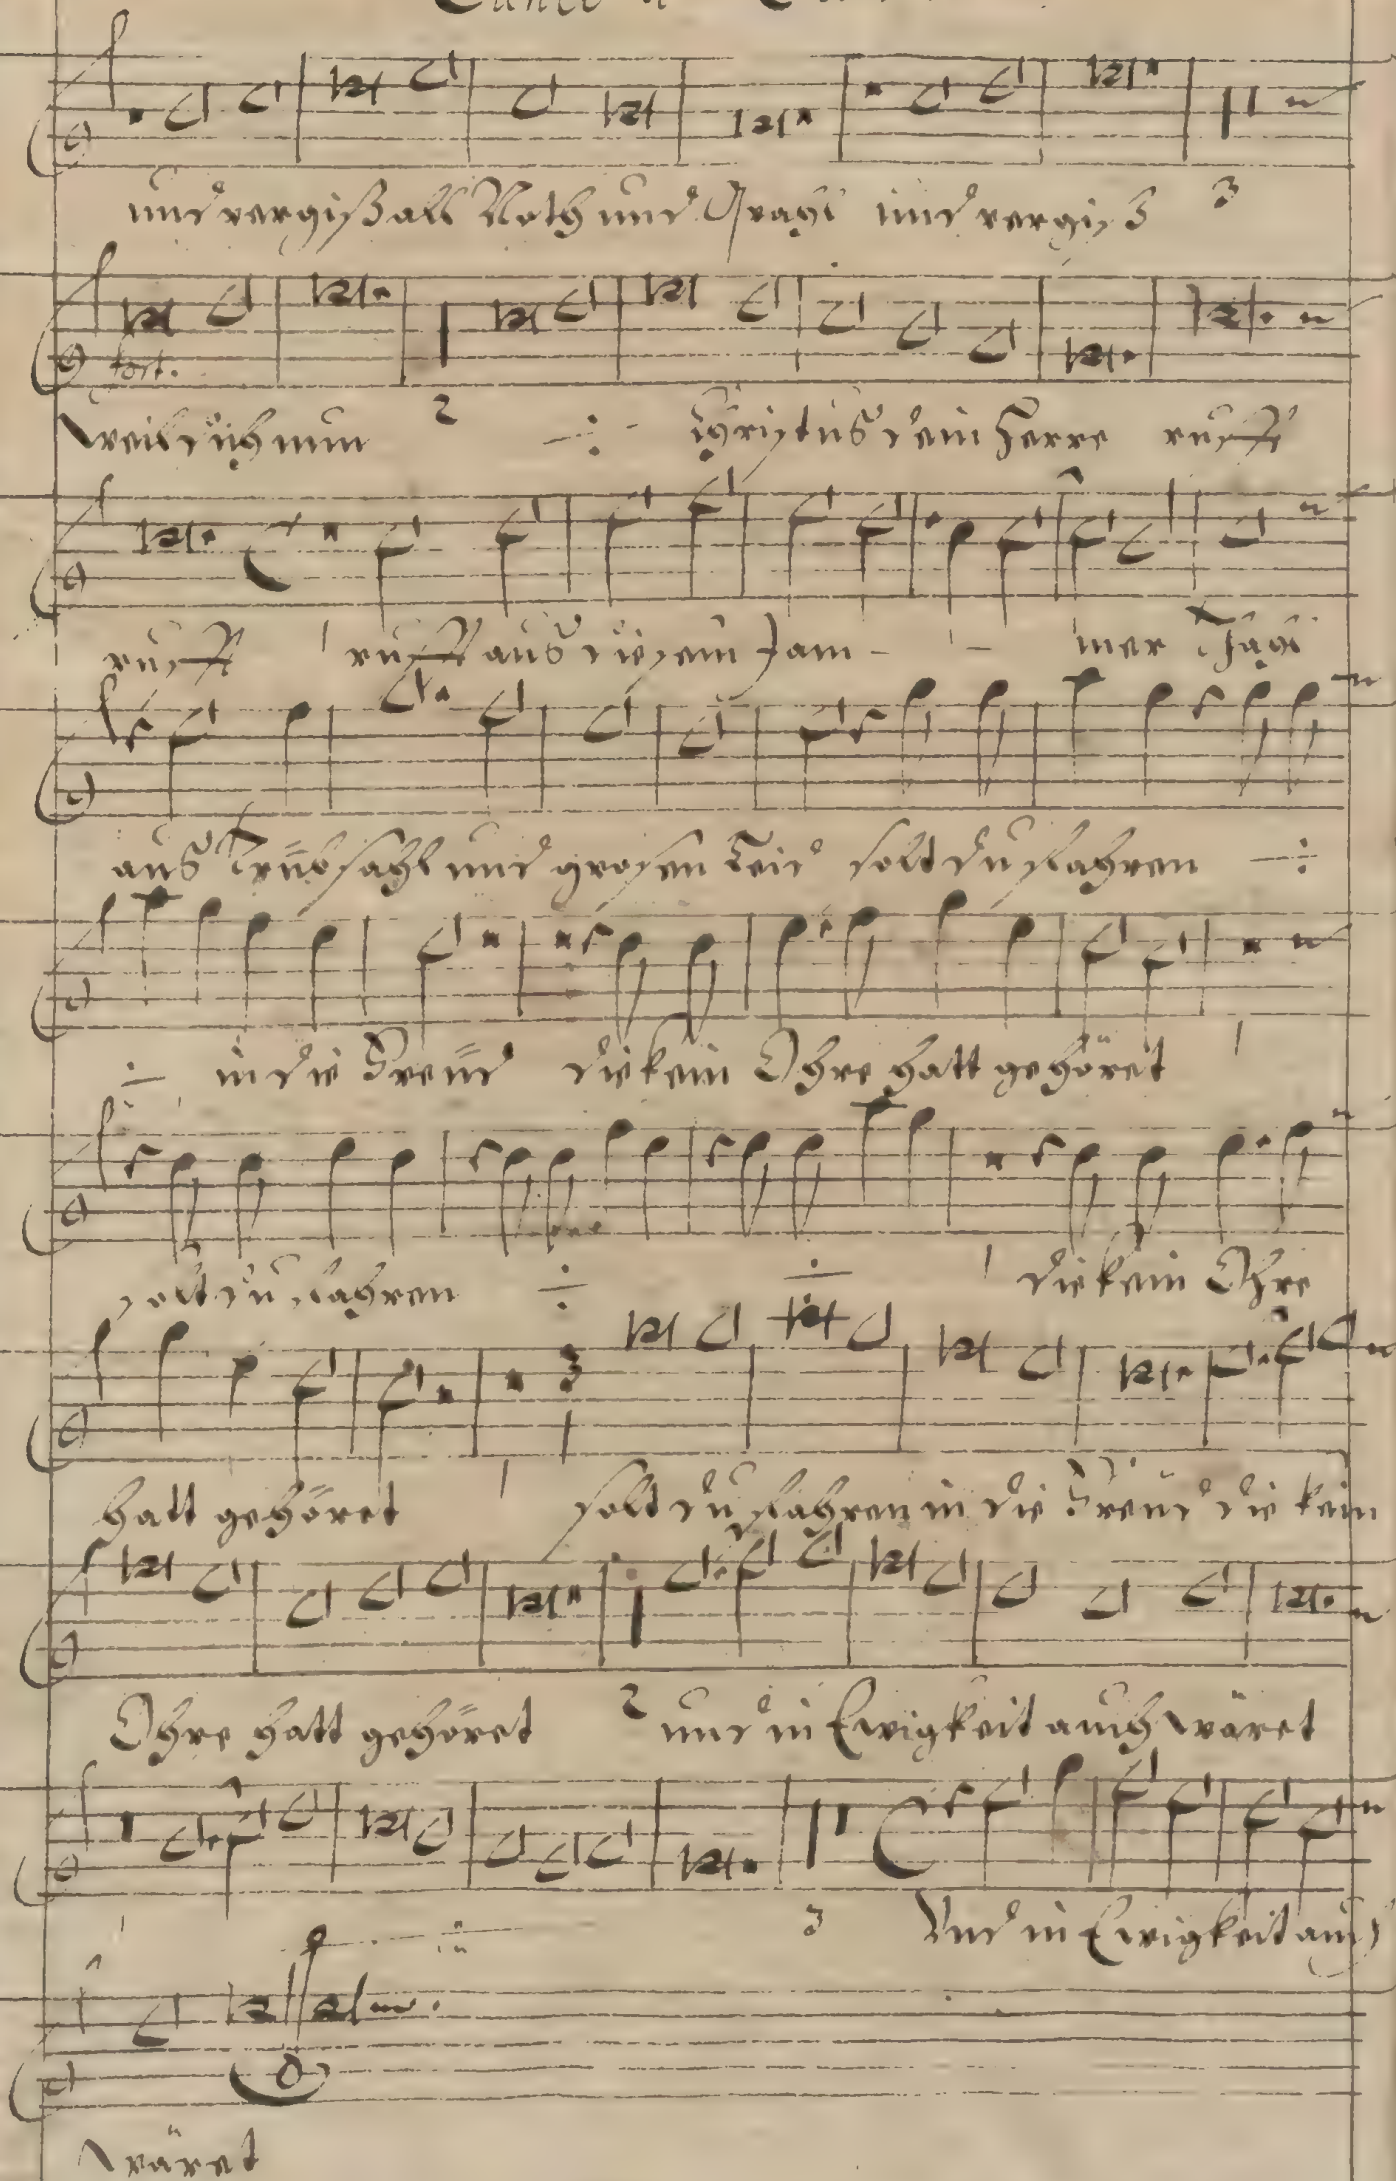 und vergiß all Noth und Qvahl und vergiß 3
fort.
weil dich nun 2 ÷ Christus dein Herre rufft
rufft rufft aus diesem Jam - - mer Thahl
aus Trübsahl und grosen Leid solt du fahren ÷
÷ in die Freüd die kein Ohre hatt gehöret
solt du fahren ÷ ÷ die kein Ohre
3
hatt gehöret solt du fahren in die Freud die kein
Ohre hatt gehöret 2 und in Ewigkeit auch wäret
3 Und in Ewigkeit auch
wäret